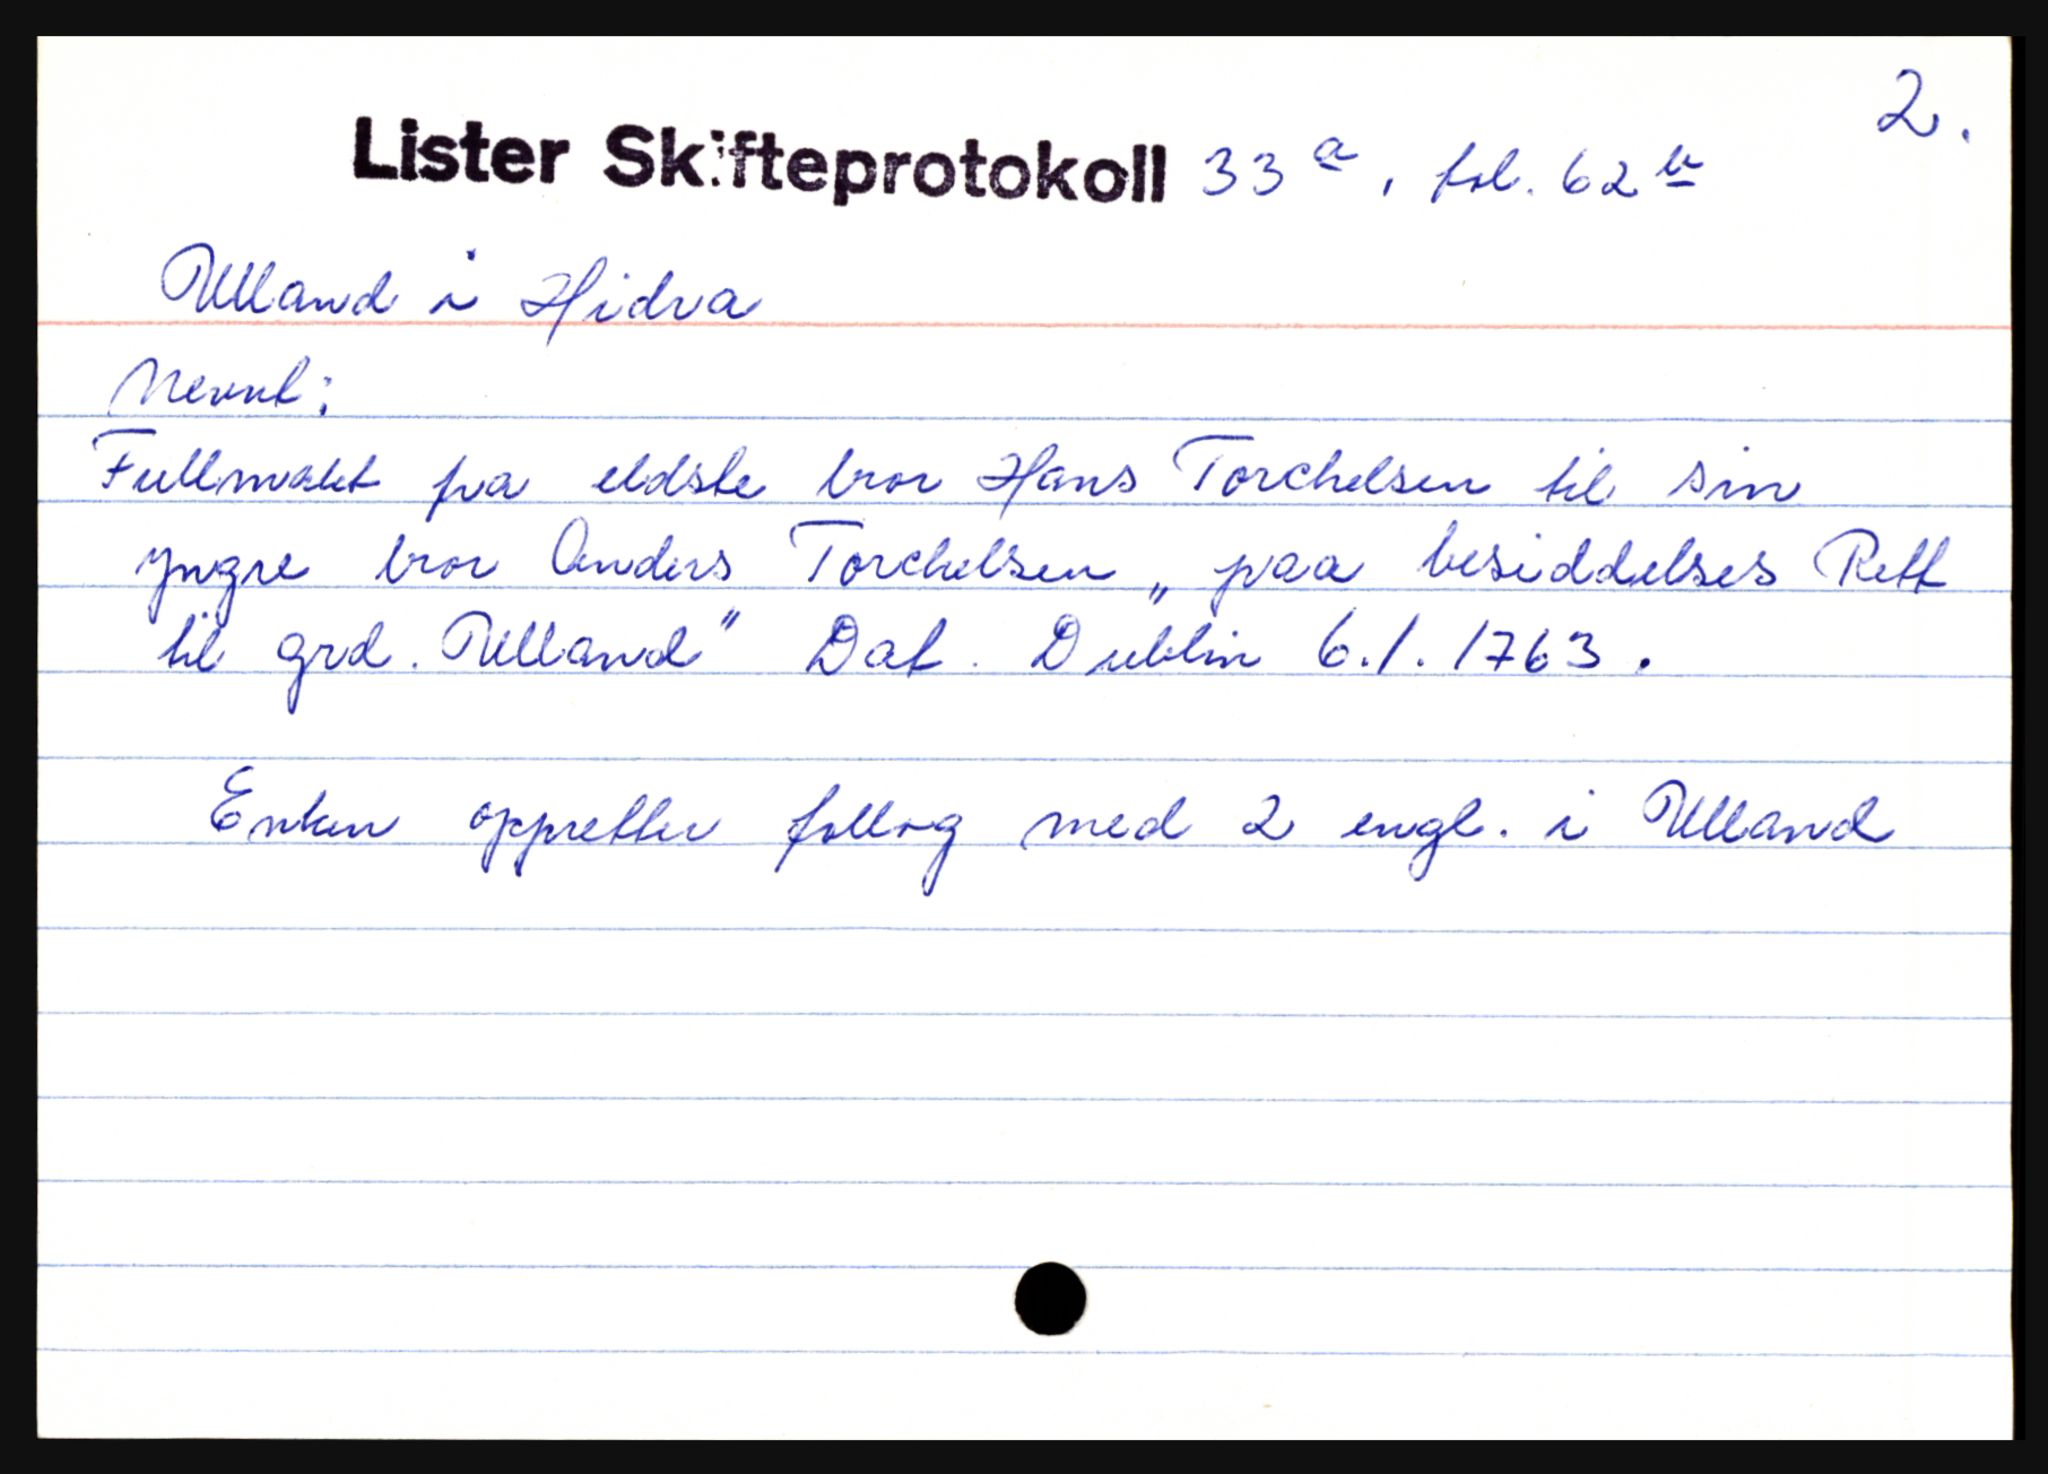 2.
Lister Skifteprotokoll 33 a, fol. 62 b
Ulland i Hidra
Nevnt:
Fullmakt fra eldste bror Hans Torchelsen til sin
yngre bror Anders Torchelsen „paa besiddelses Rett
til grd. Ulland" Dat. Dublin 6.1.1763.
Enken oppretter follog med 2 engl. i Ulland